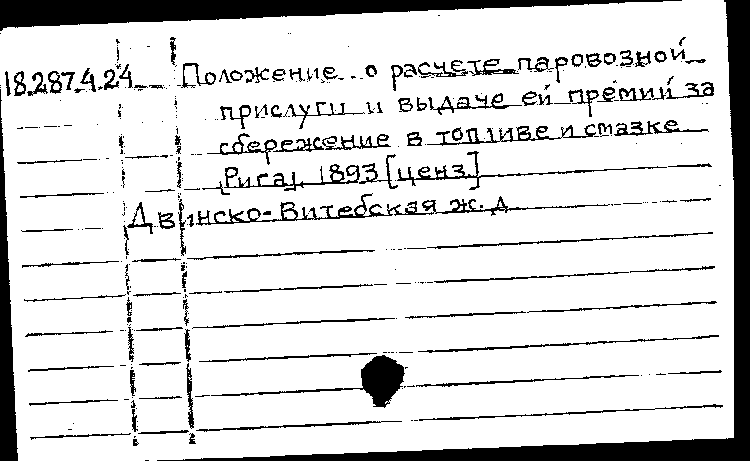 18.287.4.24 Положение о расчете паровозной
прислуги и выдаче ей премий за
сбережение в топливе и смазке
[Рига], 1893 [ценз.]
Двинско-Витебская ж. д.